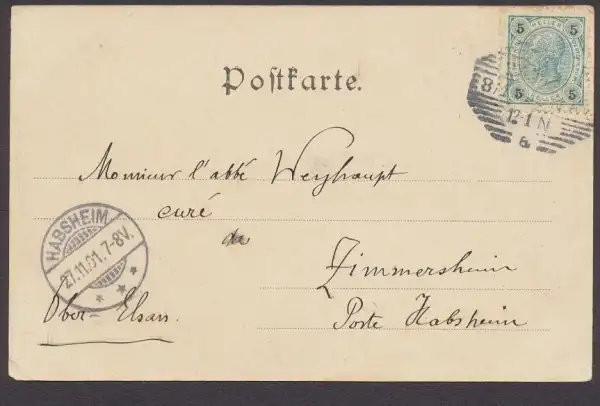 5 HELLER 5
5 HELLER 5
8/
12-1N
&
Postkarte.
Monsieur l'abbé Weyhaupt
curé
de
Zimmersheim
Poste Habsheim
Ober-Elsass.
HABSHEIM
27.11.01.7-8V.